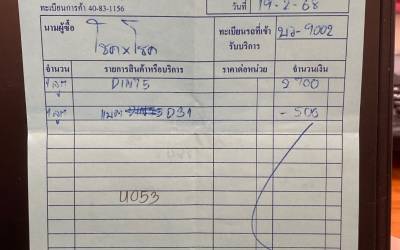 ทะเบียนการค้า 40-83-1156
วันที่ 19-2-68
นามผู้ซื้อ โชค x โชค
ทะเบียนรถที่เข้ารับบริการ บง-9002
จำนวน รายการสินค้าหรือบริการ ราคาต่อหน่วย จำนวนเงิน
1 ลูก DIN75 2700
1 ลูก แบต D31 -500
U053